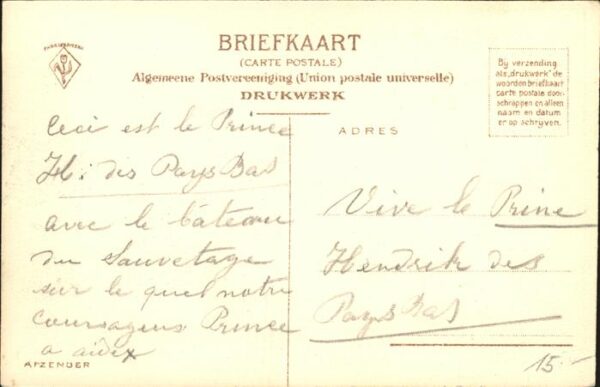 BRIEFKAART
(CARTE POSTALE)
Algemeene Postvereeniging (Union postale universelle)
DRUKWERK
Bij verzending
als „drukwerk” de
woorden briefkaart
carte postale door-
schrappen en alleen
naam en datum
er op schrijven.
ADRES
Ceci est le Prince
H: des Pays Bas
avec le bâteau
du Sauvetage
sur le quel notre
Courageus Prince
a aidé
AFZENDER
Vive le Prine
Hendrik des
Pays Bas
15-